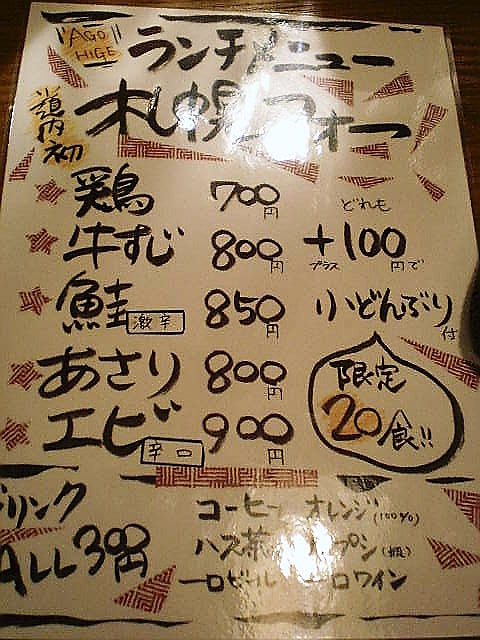 AGO HIGE
ランチメニュー
道内初
札幌フォー
鶏 700円
牛すじ 800円
鮭 激辛 850円
あさり 800円
エビ 辛口 900円
どれも
+100円で
プラス
小どんぶり付
限定
20食!!
ドリンク
ALL300円
コーヒー オレンジ(100%)
ハス茶 ペプシ(瓶)
一口ビール 一口ワイン